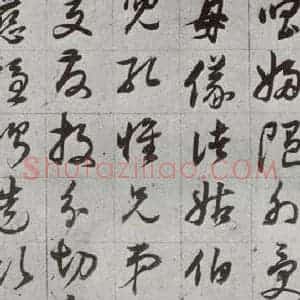 唱婦隨外受
母儀諸姑伯
兒孔懷兄弟
交友投分切
慈隱惻造次
Shufaziliao.COM